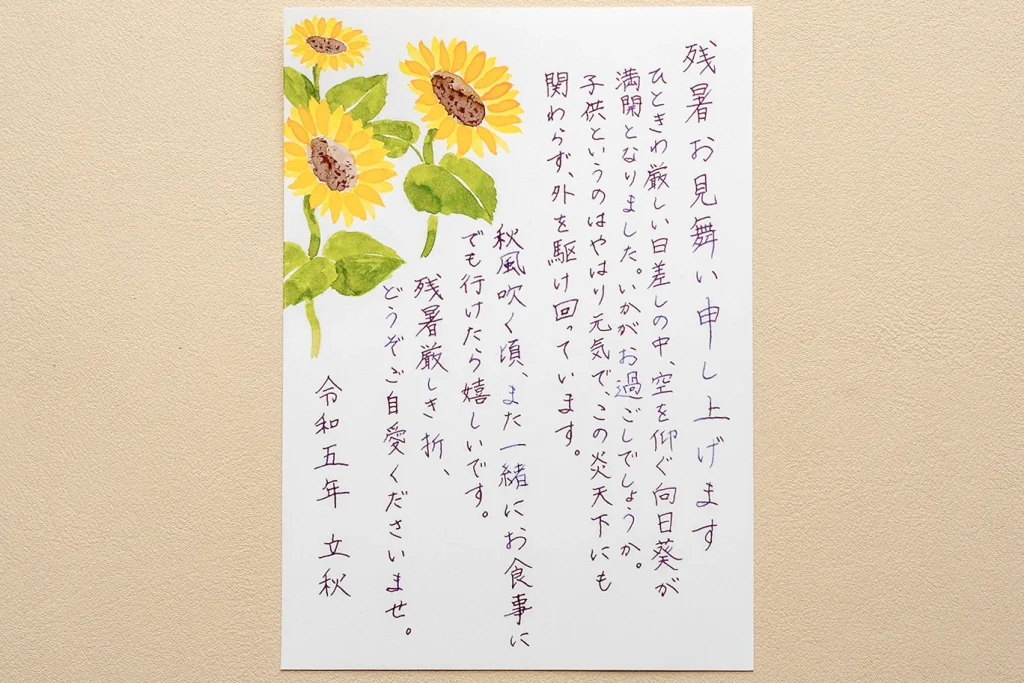 残暑お見舞い申し上げます
ひときわ厳しい日差しの中、空を仰ぐ向日葵が
満開となりました。いかがお過ごしでしょうか。
子供というのはやはり元気で、この炎天下にも
関わらず、外を駆け回っています。
秋風吹く頃、また一緒にお食事に
でも行けたら嬉しいです。
残暑厳しき折、
どうぞご自愛くださいませ。
令和五年 立秋